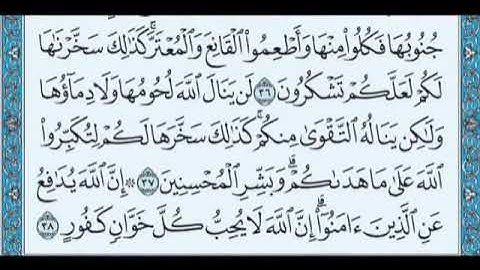 جُنُوبُهَا فَكُلُوا۟ مِنْهَا وَأَطْعِمُوا۟ ٱلْقَانِعَ وَٱلْمُعْتَرَّ ۚ كَذَٰلِكَ سَخَّرْنَـٰهَا
لَكُمْ لَعَلَّكُمْ تَشْكُرُونَ ٣٦ لَن يَنَالَ ٱللَّهَ لُحُومُهَا وَلَا دِمَآؤُهَا
وَلَـٰكِن يَنَالُهُ ٱلتَّقْوَىٰ مِنكُمْ ۚ كَذَٰلِكَ سَخَّرَهَا لَكُمْ لِتُكَبِّرُوا۟
ٱللَّهَ عَلَىٰ مَا هَدَىٰكُمْ ۗ وَبَشِّرِ ٱلْمُحْسِنِينَ ٣٧ ۞ إِنَّ ٱللَّهَ يُدَٰفِعُ
عَنِ ٱلَّذِينَ ءَامَنُوٓا۟ ۗ إِنَّ ٱللَّهَ لَا يُحِبُّ كُلَّ خَوَّانٍ كَفُورٍ ٣٨